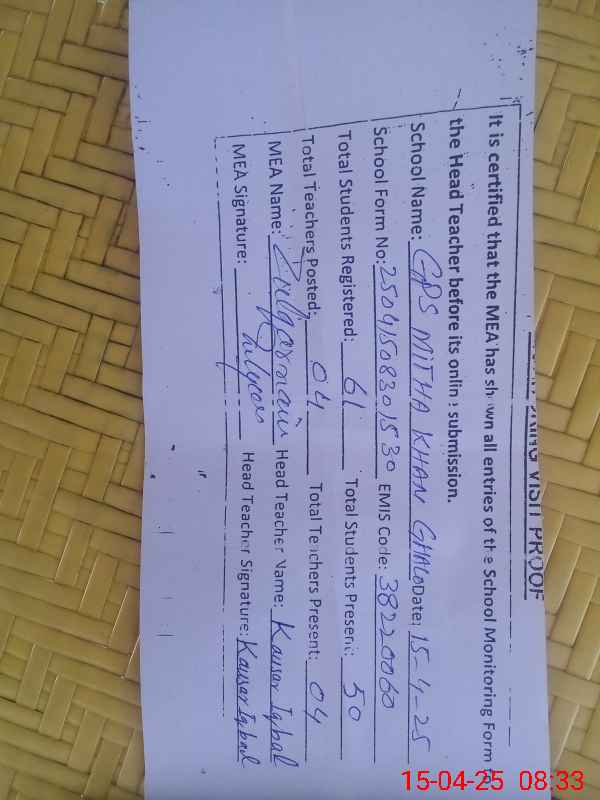 VISIT PROOF
It is certified that the MEA has shown all entries of the School Monitoring Form to
the Head Teacher before its online submission.
School Name: GPS MITHA KHAN GHALO Date: 15-4-25
School Form No: 25041508301530 EMIS Code: 38220060
Total Students Registered: 61 Total Students Present: 50
Total Teachers Posted: 04 Total Teachers Present: 04
MEA Name: Zulqarnain Head Teacher Name: Kausar Iqbal
MEA Signature: Head Teacher Signature: Kausar Iqbal
15-04-25 08:33